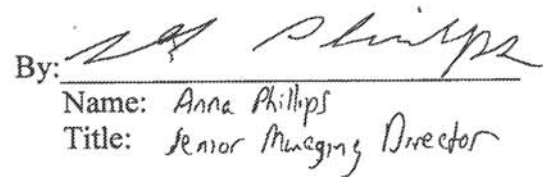 By: Phillips
Name: Anna Phillips
Title: Senior Managing Director